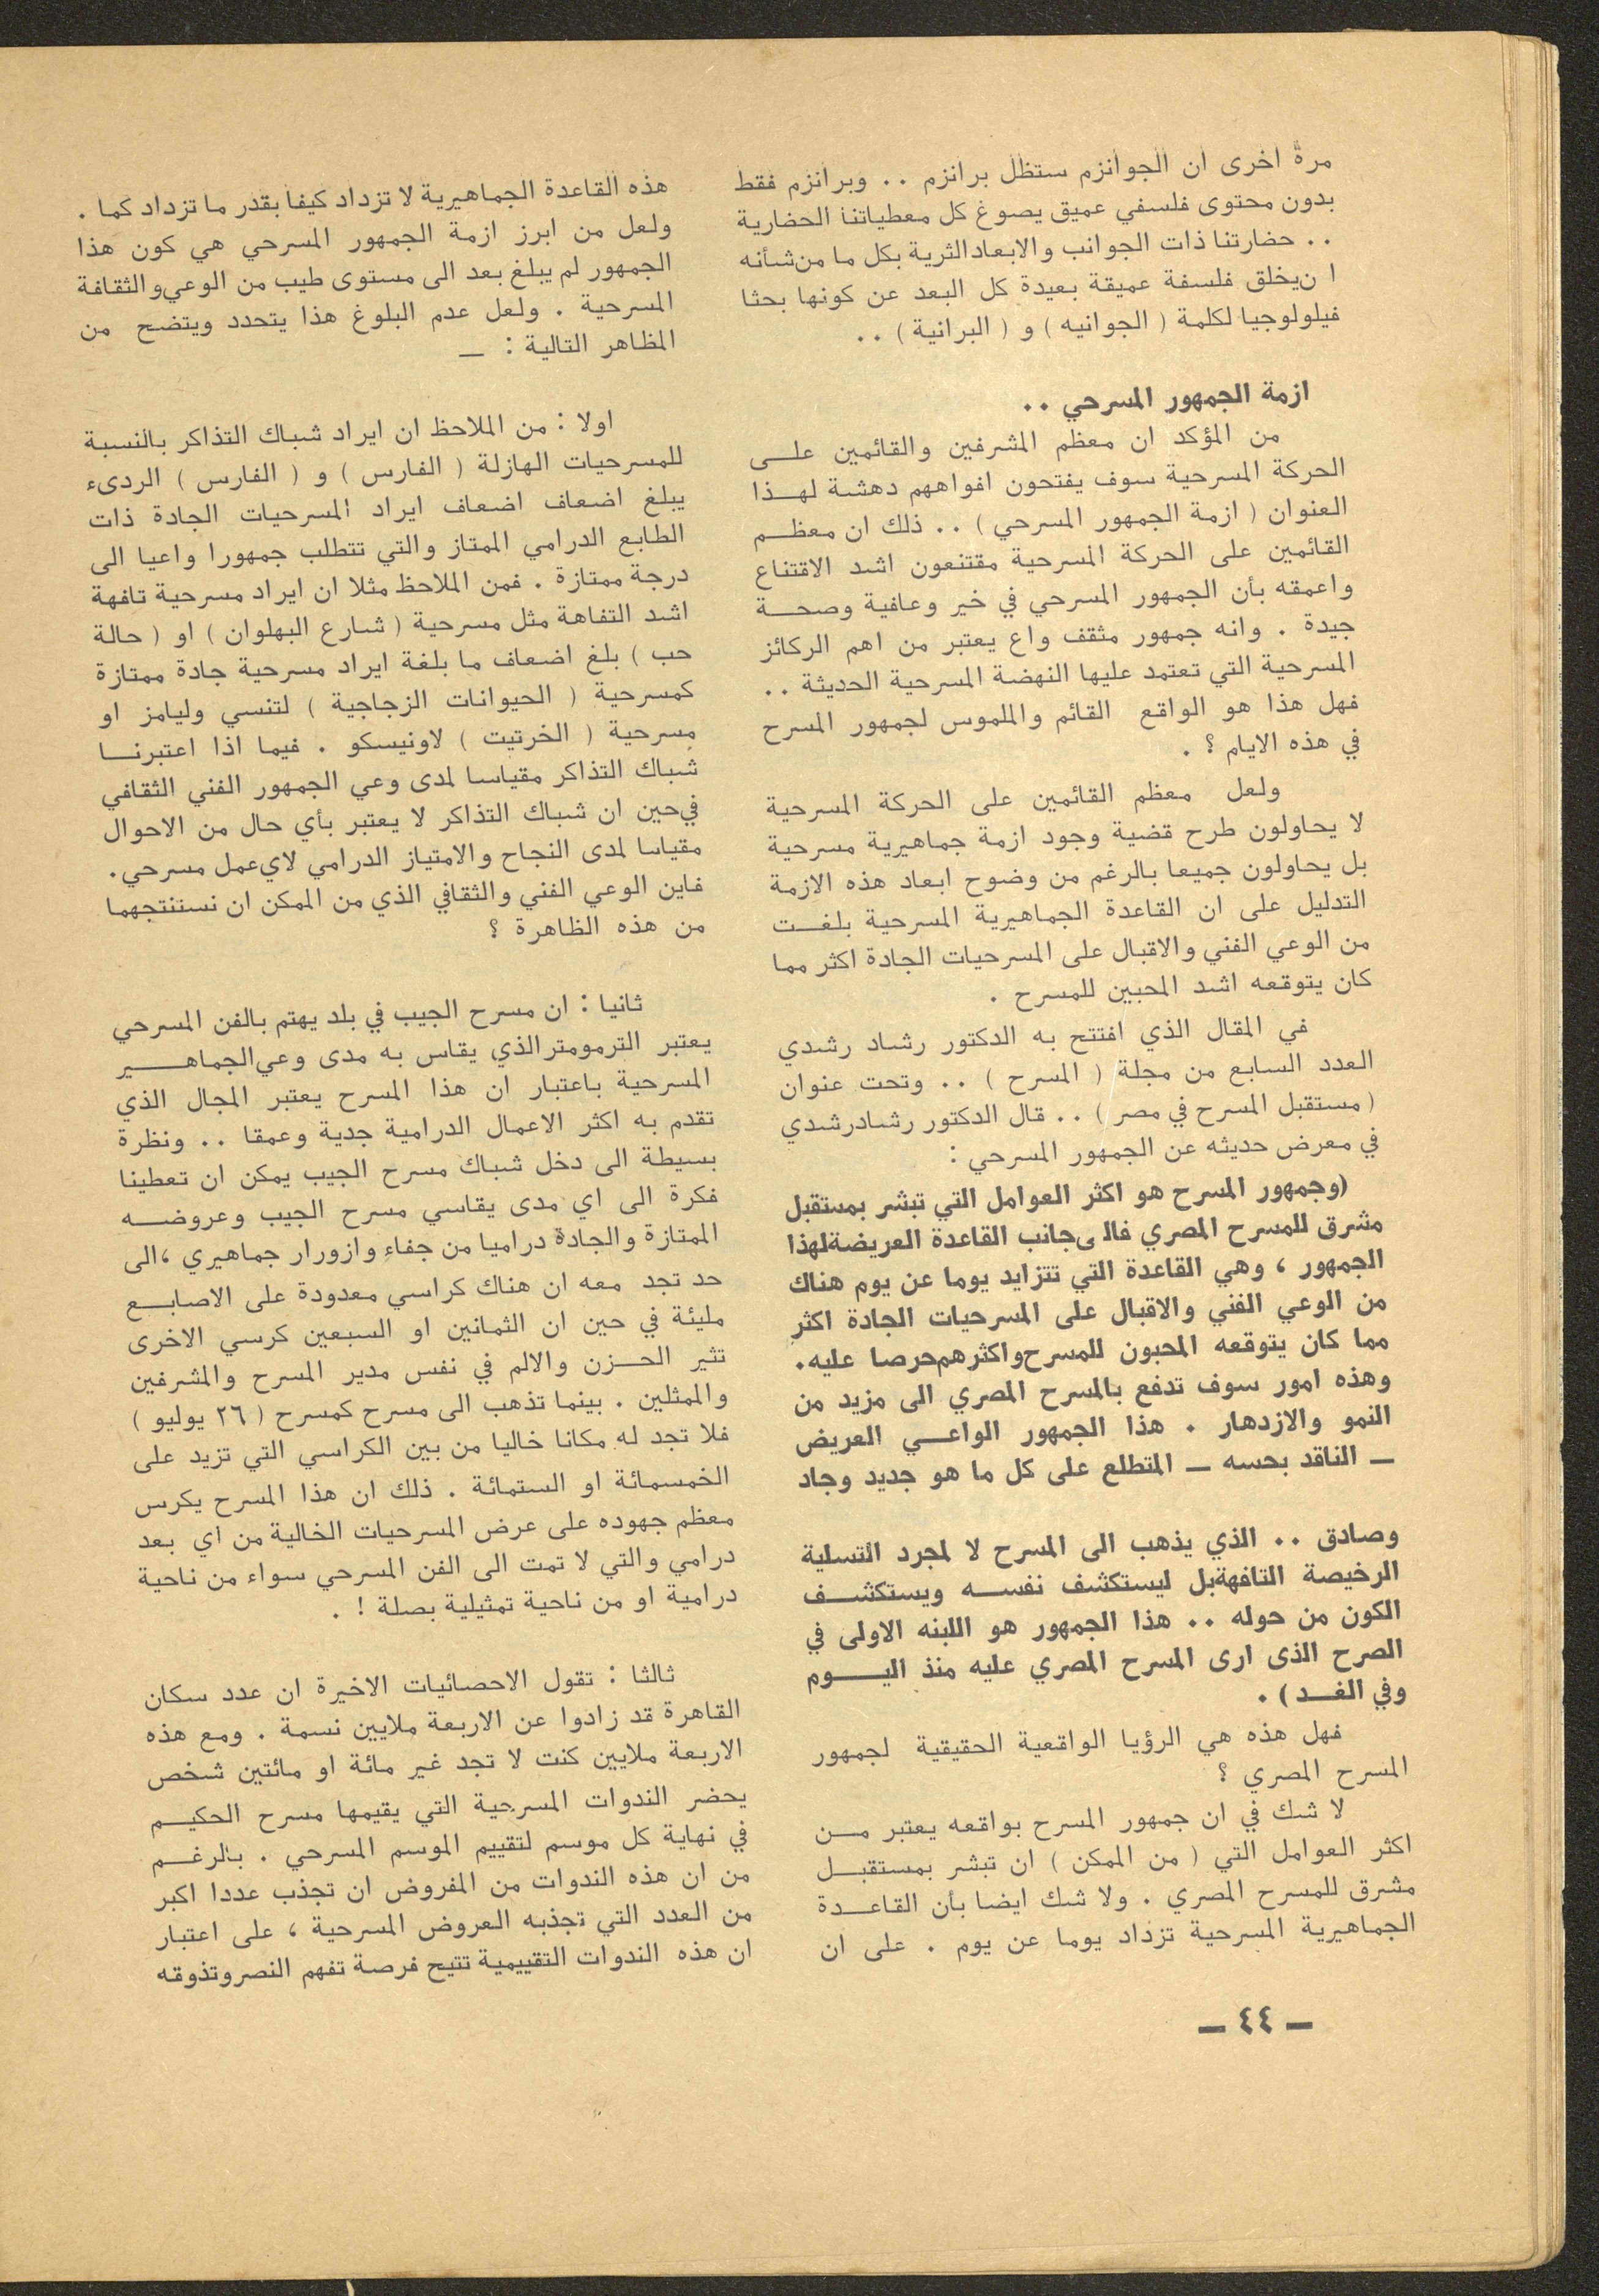 مرة اخرى ان الجوانزم ستظل برانزم .. وبرانزم فقط
بدون محتوى فلسفي عميق يصوغ كل معطياتنا الحضارية
.. حضارتنا ذات الجوانب والابعاد الثرية بكل ما من شأنه
ا ن يخلق فلسفة عميقة بعيدة كل البعد عن كونها بحثا
فيلولوجيا لكلمة ( الجوانيه ) و ( البرانية ) ..
ازمة الجمهور المسرحي ..
من المؤكد ان معظم المشرفين والقائمين على
الحركة المسرحية سوف يفتحون افواههم دهشة لهذا
العنوان ( ازمة الجمهور المسرحي ) .. ذلك ان معظم
القائمين على الحركة المسرحية مقتنعون اشد الاقتناع
واعمقه بأن الجمهور المسرحي في خير وعافية وصحة
جيدة . وانه جمهور مثقف واع يعتبر من اهم الركائز
المسرحية التي تعتمد عليها النهضة المسرحية الحديثة ..
فهل هذا هو الواقع القائم والملموس لجمهور المسرح
في هذه الايام ؟ .
ولعل معظم القائمين على الحركة المسرحية
لا يحاولون طرح قضية وجود ازمة جماهيرية مسرحية
بل يحاولون جميعا بالرغم من وضوح ابعاد هذه الازمة
التدليل على ان القاعدة الجماهيرية المسرحية بلغت
من الوعي الفني والاقبال على المسرحيات الجادة اكثر مما
كان يتوقعه اشد المحبين للمسرح .
في المقال الذي افتتح به الدكتور رشاد رشدي
العدد السابع من مجلة ( المسرح ) .. وتحت عنوان
( مستقبل المسرح في مصر ) .. قال الدكتور رشاد رشدي
في معرض حديثه عن الجمهور المسرحي :
(وجمهور المسرح هو اكثر العوامل التي تبشر بمستقبل
مشرق للمسرح المصري فالى جانب القاعدة العريضة لهذا
الجمهور ، وهي القاعدة التي تتزايد يوما عن يوم هناك
من الوعي الفني والاقبال على المسرحيات الجادة اكثر
مما كان يتوقعه المحبون للمسرح واكثرهم حرصا عليه.
وهذه امور سوف تدفع بالمسرح المصري الى مزيد من
النمو والازدهار . هذا الجمهور الواعي العريض
ـ الناقد بحسه ـ المتطلع على كل ما هو جديد وجاد
وصادق .. الذي يذهب الى المسرح لا لمجرد التسلية
الرخيصة التافهة بل ليستكشف نفسه ويستكشف
الكون من حوله .. هذا الجمهور هو اللبنه الاولى في
الصرح الذى ارى المسرح المصري عليه منذ اليوم
وفي الغد ) .
فهل هذه هي الرؤيا الواقعية الحقيقية لجمهور
المسرح المصري ؟
لا شك في ان جمهور المسرح بواقعه يعتبر من
اكثر العوامل التي ( من الممكن ) ان تبشر بمستقبل
مشرق للمسرح المصري . ولا شك ايضا بأن القاعدة
الجماهيرية المسرحية تزداد يوما عن يوم . على ان
هذه القاعدة الجماهيرية لا تزداد كيفا بقدر ما تزداد كما .
ولعل من ابرز ازمة الجمهور المسرحي هي كون هذا
الجمهور لم يبلغ بعد الى مستوى طيب من الوعي والثقافة
المسرحية . ولعل عدم البلوغ هذا يتحدد ويتضح من
المظاهر التالية : ـ
اولا : من الملاحظ ان ايراد شباك التذاكر بالنسبة
للمسرحيات الهازلة ( الفارس ) و ( الفارس ) الردىء
يبلغ اضعاف اضعاف ايراد المسرحيات الجادة ذات
الطابع الدرامي الممتاز والتي تتطلب جمهورا واعيا الى
درجة ممتازة . فمن الملاحظ مثلا ان ايراد مسرحية تافهة
اشد التفاهة مثل مسرحية ( شارع البهلوان ) او ( حالة
حب ) بلغ اضعاف ما بلغة ايراد مسرحية جادة ممتازة
كمسرحية ( الحيوانات الزجاجية ) لتنسي وليامز او
مسرحية ( الخرتيت ) لاونيسكو . فيما اذا اعتبرنا
شباك التذاكر مقياسا لمدى وعي الجمهور الفني الثقافي
في حين ان شباك التذاكر لا يعتبر بأي حال من الاحوال
مقياسا لمدى النجاح والامتياز الدرامي لاي عمل مسرحي.
فاين الوعي الفني والثقافي الذي من الممكن ان نستنتجهما
من هذه الظاهرة ؟
ثانيا : ان مسرح الجيب في بلد يهتم بالفن المسرحي
يعتبر الترمومتر الذي يقاس به مدى وعي الجماهير
المسرحية باعتبار ان هذا المسرح يعتبر المجال الذي
تقدم به اكثر الاعمال الدرامية جدية وعمقا .. ونظرة
بسيطة الى دخل شباك مسرح الجيب يمكن ان تعطينا
فكرة الى اي مدى يقاسي مسرح الجيب وعروضه
الممتازة والجادة دراميا من جفاء وازورار جماهيري ، الى
حد تجد معه ان هناك كراسي معدودة على الاصابع
مليئة في حين ان الثمانين او السبعين كرسي الاخرى
تثير الحزن والالم في نفس مدير المسرح والمشرفين
والممثلين . بينما تذهب الى مسرح كمسرح ( ٢٦ يوليو )
فلا تجد له مكانا خاليا من بين الكراسي التي تزيد على
الخمسمائة او الستمائة . ذلك ان هذا المسرح يكرس
معظم جهوده على عرض المسرحيات الخالية من اي بعد
درامي والتي لا تمت الى الفن المسرحي سواء من ناحية
درامية او من ناحية تمثيلية بصلة ! .
ثالثا : تقول الاحصائيات الاخيرة ان عدد سكان
القاهرة قد زادوا عن الاربعة ملايين نسمة . ومع هذه
الاربعة ملايين كنت لا تجد غير مائة او مائتين شخص
يحضر الندوات المسرحية التي يقيمها مسرح الحكيم
في نهاية كل موسم لتقييم الموسم المسرحي . بالرغم
من ان هذه الندوات من المفروض ان تجذب عددا اكبر
من العدد التي تجذبه العروض المسرحية ، على اعتبار
ان هذه الندوات التقييمية تتيح فرصة تفهم النصر وتذوقه
ـ ٤٤ ـ